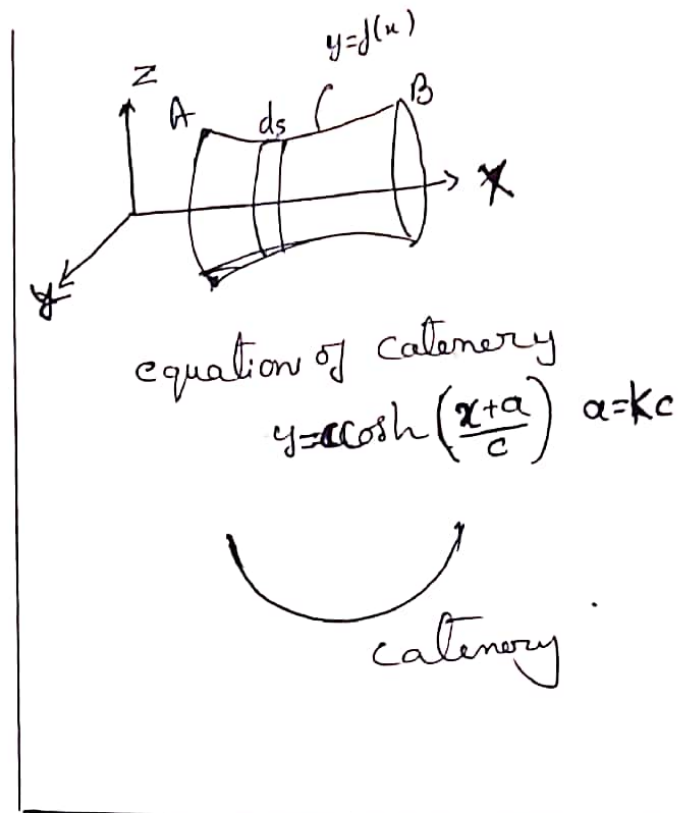 y=f(x)
Z
A
ds
B
X
y
equation of catenery
y=ccosh(x+a/c) a=kc
catenery